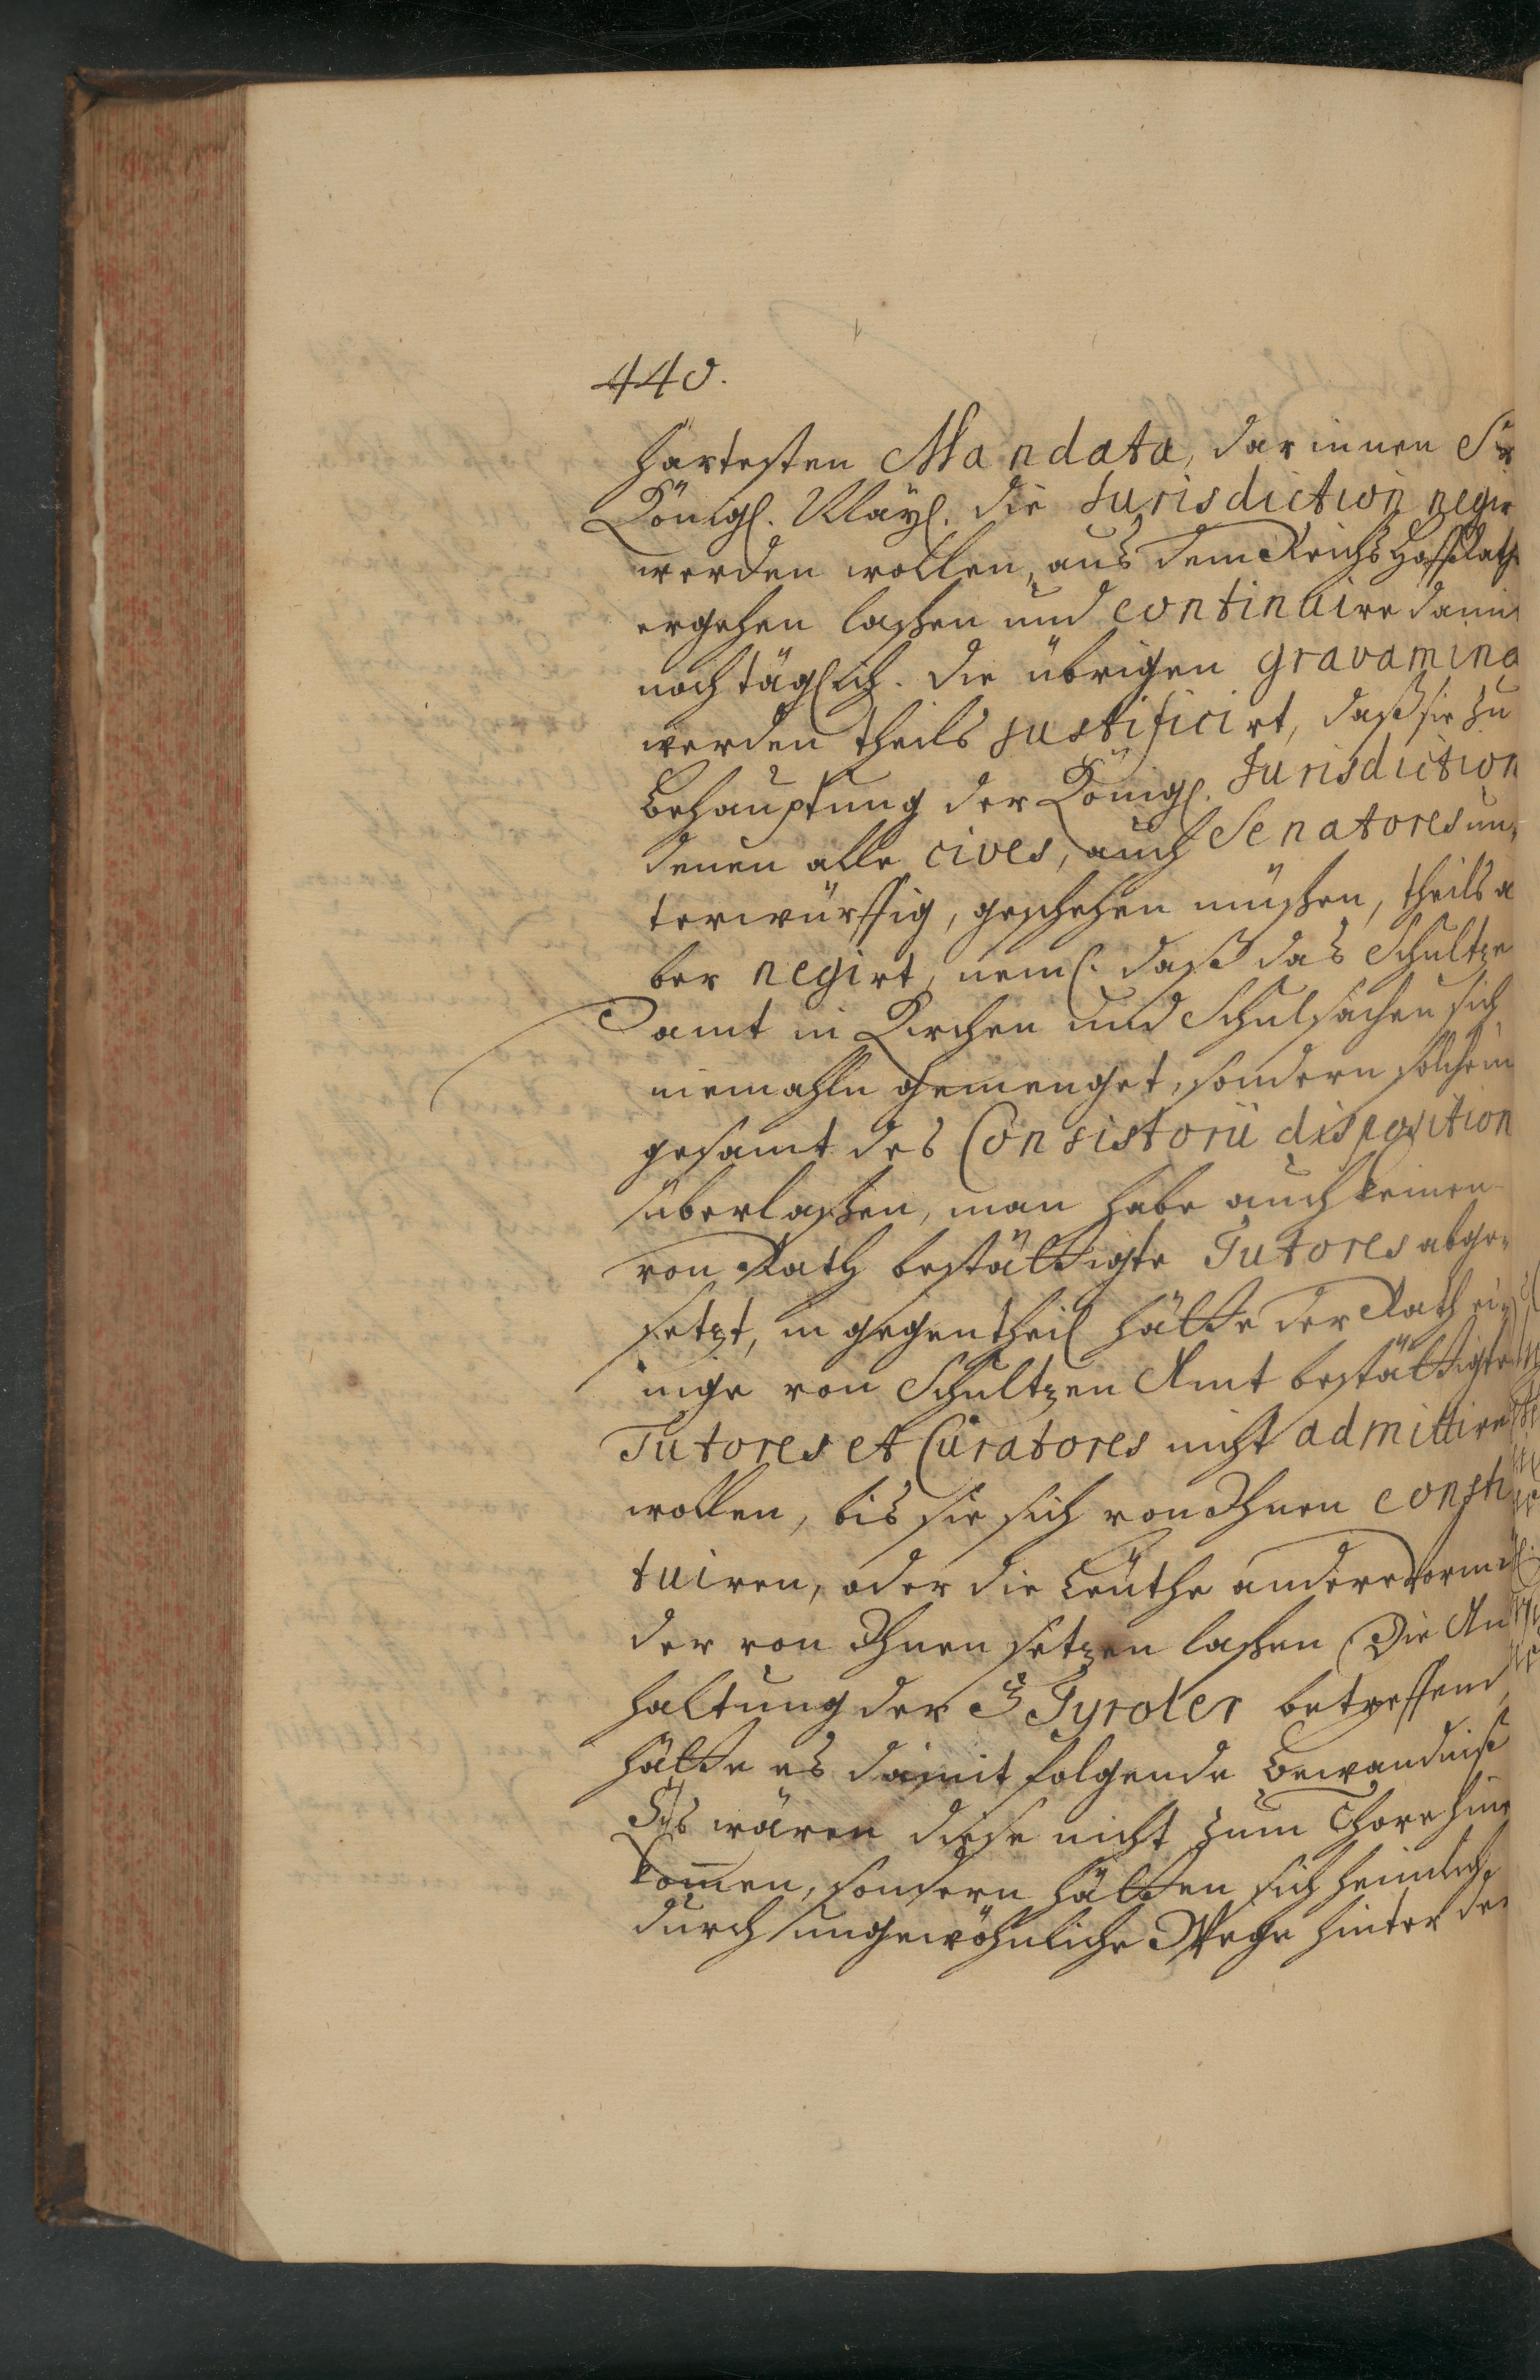 440.
hartesten Mandata, darinnen Sr
Königl. Mayl. die Jurisdiction negir
werden wollen, aus dem Reichs Hoffrath
ergehen laßen und continuire damit
noch täglich. Die übrigen gravamina
werden theils justificirt, daß sie zu
Behauptung der Königl. Jurisdiction
denen alle cives, auch Senatores un„
terwürffig, geschehen müßen, theils a
ber negirt, neml. daß das Schultze
amt in Kirchen und Schulsachen sich
niemahln gemenget, sondern solche in
gesamt des Consistorii disposition
überlaßen, man habe auch keinen
von Rath bestättigte Tutores abge„
setzt, in gegentheil hätte der Rath ei„
nige von Schultzen Amt bestättigte
Tutores et Curatores nicht admittiren
wollen, bis sie sich von Ihnen consti
tuiren, oder die Leuthe andere Vormün
der von Ihnen setzen laßen. Die An
haltung der 3 Tyroler betreffend,
hätte es damit folgende Bewandniß
Es wären diese nicht zum Thore hinein
kom̅en, sondern hätten sich heimlich
durch ungewöhnliche Wege hinter der